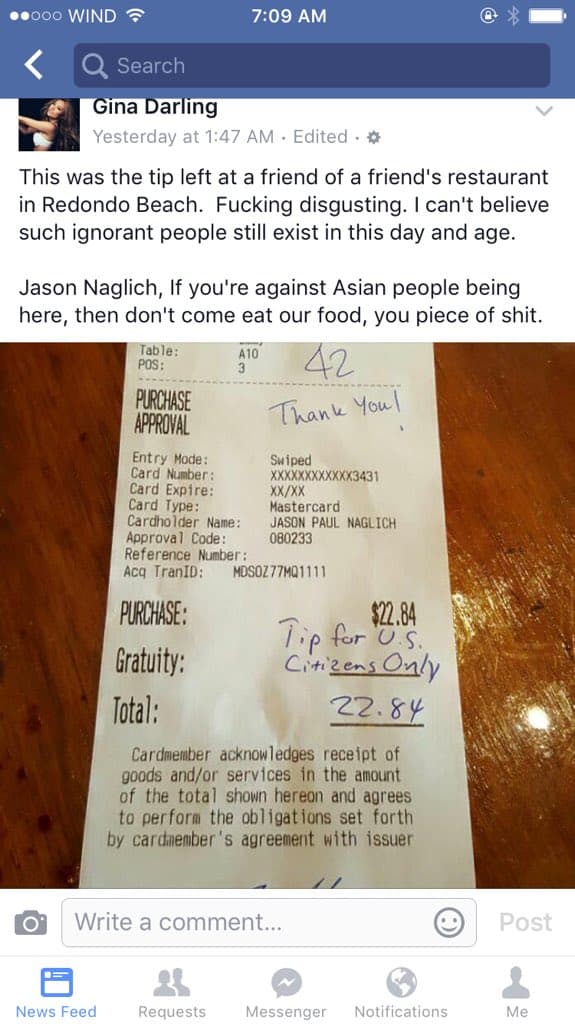 WIND
7:09 AM
Search
Gina Darling
Yesterday at 1:47 AM · Edited ·
This was the tip left at a friend of a friend's restaurant
in Redondo Beach.  Fucking disgusting. I can't believe
such ignorant people still exist in this day and age.
Jason Naglich, If you're against Asian people being
here, then don't come eat our food, you piece of shit.
Table: A10
POS: 3
42
PURCHASE
APPROVAL
Thank You!
Entry Mode: Swiped
Card Number: XXXXXXXXXXXX3431
Card Expire: XX/XX
Card Type: Mastercard
Cardholder Name: JASON PAUL NAGLICH
Approval Code: 080233
Reference Number:
Acq TranID: MDSOZ77MQ1111
PURCHASE: $22.84
Tip for U.S.
Gratuity: Citizens Only
Total: 22.84
Cardmember acknowledges receipt of
goods and/or services in the amount
of the total shown hereon and agrees
to perform the obligations set forth
by cardmember's agreement with issuer
Write a comment...
Post
News Feed
Requests
Messenger
Notifications
Me